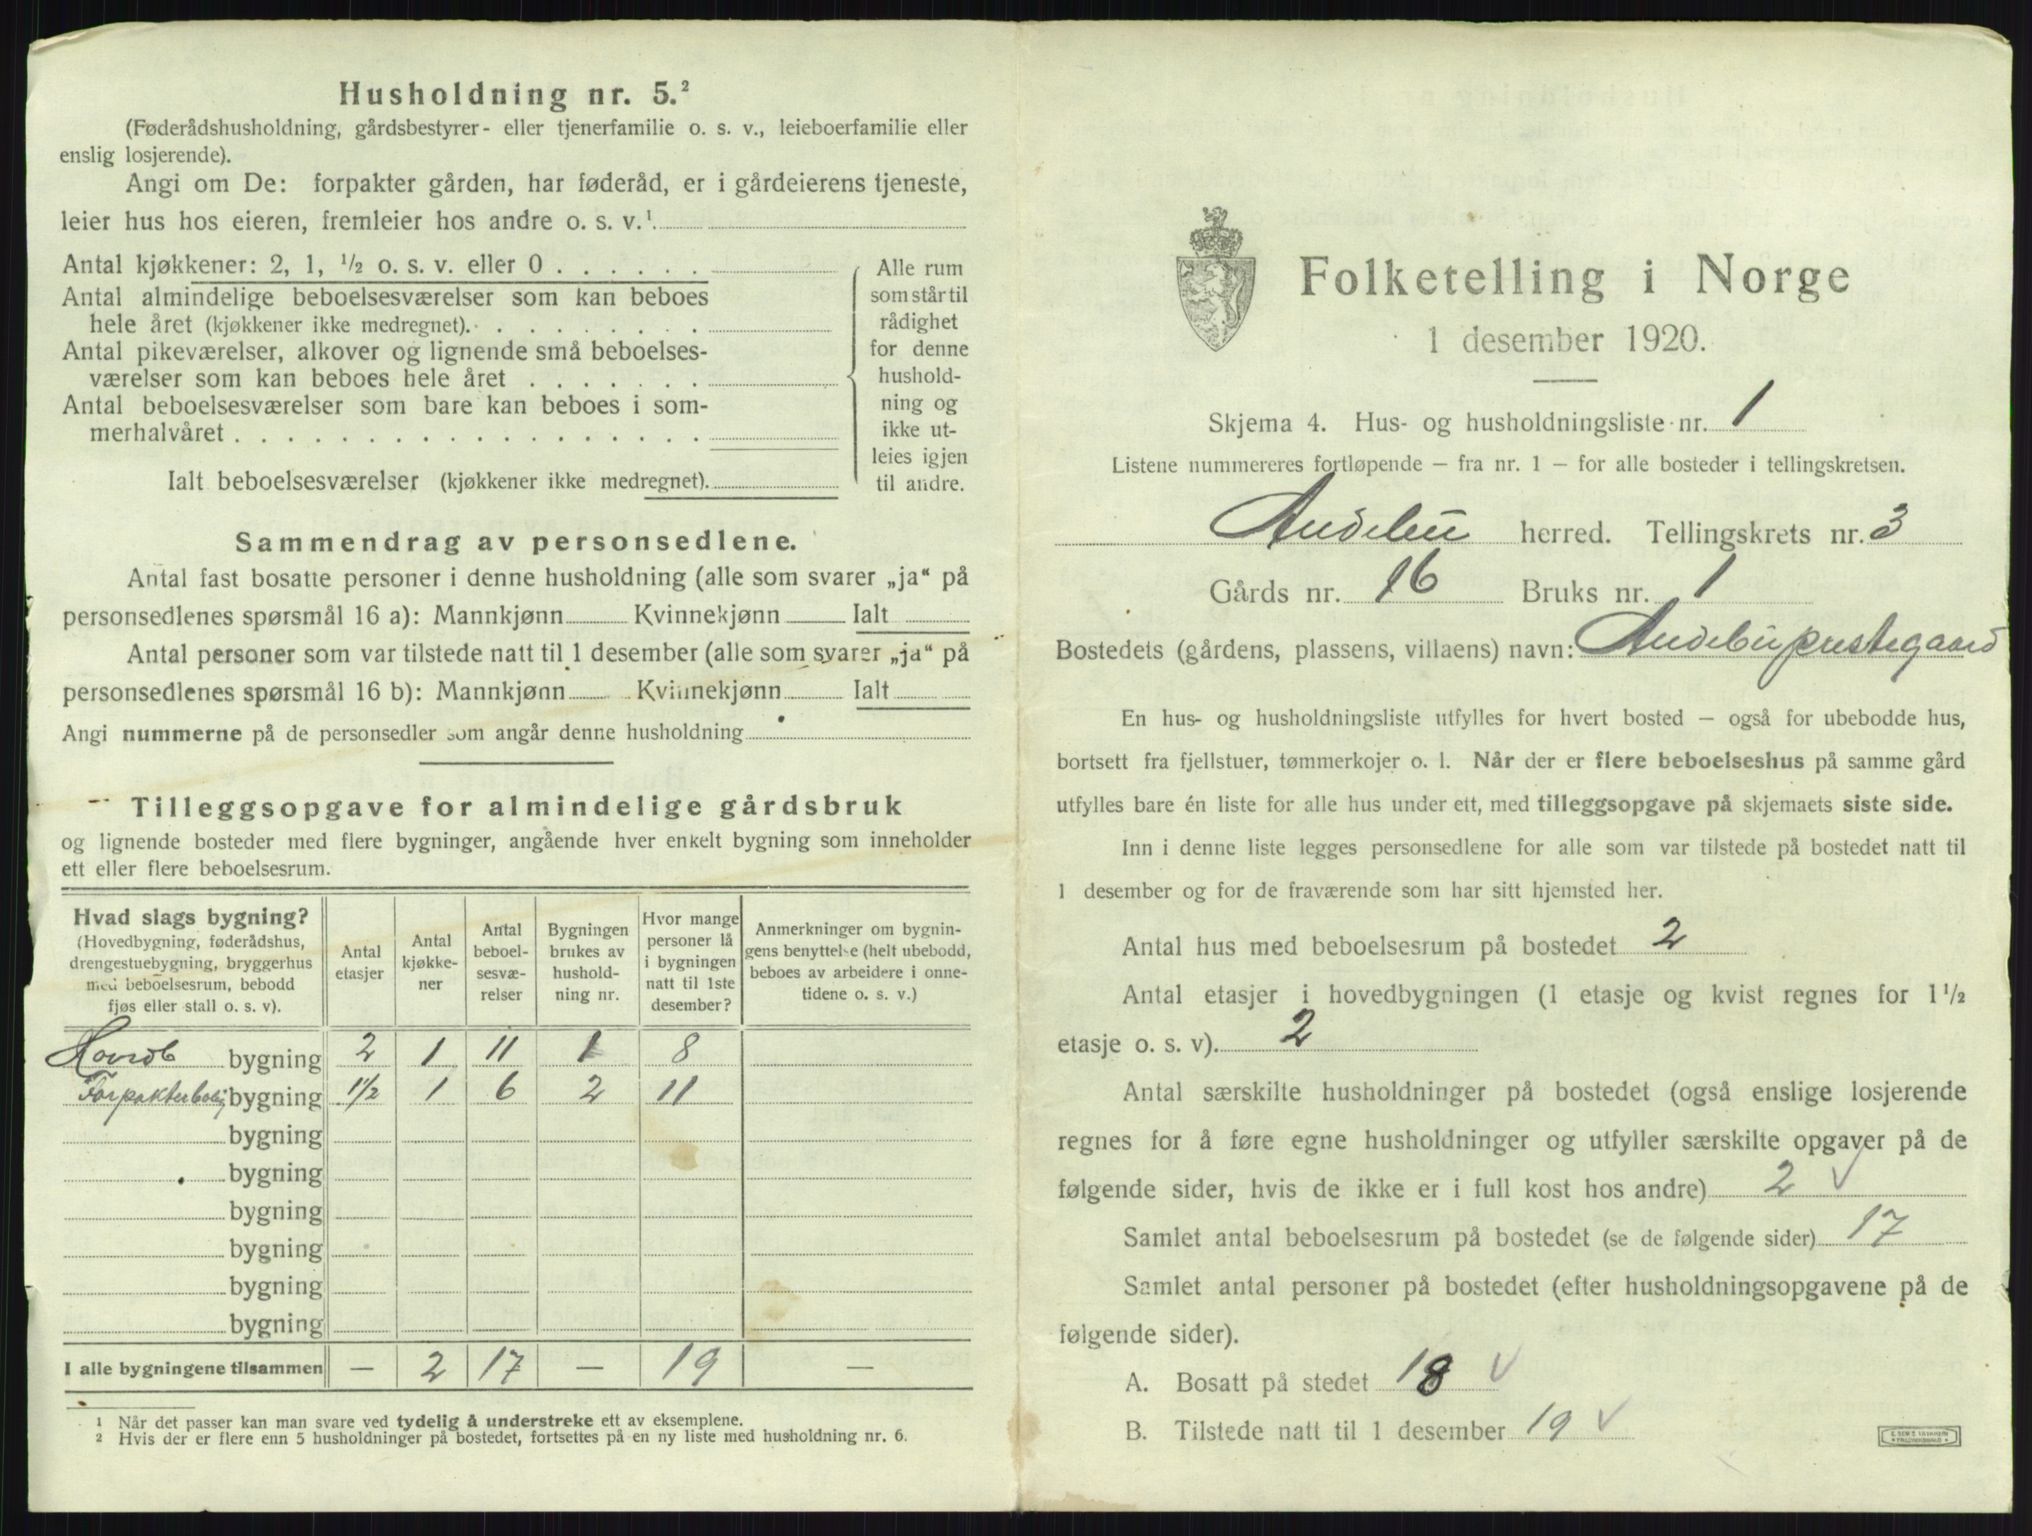 Husholdning nr. 5.²
(Føderådshusholdning, gårdsbestyrer- eller tjenerfamilie o. s. v., leieboerfamilie eller
enslig losjerende).
Angi om De: forpakter gården, har føderåd, er i gårdeierens tjeneste,
leier hus hos eieren, fremleier hos andre o. s. v.¹
Antal kjøkkener: 2, 1, ½ o. s. v. eller 0 . . . . . .
Antal almindelige beboelsesværelser som kan beboes
hele året (kjøkkener ikke medregnet). . . . . . . . .
Antal pikeværelser, alkover og lignende små beboelses-
værelser som kan beboes hele året . . . . . . .
Antal beboelsesværelser som bare kan beboes i som-
merhalvåret . . . . . . . . . . . . . . . . . .
Ialt beboelsesværelser (kjøkkener ikke medregnet).
Alle rum
som står til
rådighet
for denne
hushold-
ning og
ikke ut-
leies igjen
til andre.
Sammendrag av personsedlene.
Antal fast bosatte personer i denne husholdning (alle som svarer „ja“ på
personsedlenes spørsmål 16 a): Mannkjønn Kvinnekjønn Ialt
Antal personer som var tilstede natt til 1 desember (alle som svarer „ja“ på
personsedlenes spørsmål 16 b): Mannkjønn Kvinnekjønn Ialt
Angi nummerne på de personsedler som angår denne husholdning
Tilleggsopgave for almindelige gårdsbruk
og lignende bosteder med flere bygninger, angående hver enkelt bygning som inneholder
ett eller flere beboelsesrum.
Hvad slags bygning?
(Hovedbygning, føderådshus,
drengestuebygning, bryggerhus
med beboelsesrum, bebodd
fjøs eller stall o. s. v).
Antal
etasjer
Antal
kjøkke-
ner
Antal
beboel-
sesvæ-
relser
Bygningen
brukes av
hushold-
ning nr.
Hvor mange
personer lå
i bygningen
natt til 1ste
desember?
Anmerkninger om bygnin-
gens benyttelse (helt ubebodd,
beboes av arbeidere i onne-
tidene o. s. v.)
Hovedb bygning 2 1 11 1 8
Forpakterbolig bygning 1½ 1 6 2 11
bygning
bygning
bygning
bygning
bygning
bygning
I alle bygningene tilsammen — 2 17 — 19 —
¹ Når det passer kan man svare ved tydelig å understreke ett av eksemplene.
² Hvis der er flere enn 5 husholdninger på bostedet, fortsettes på en ny liste med husholdning nr. 6.
Folketelling i Norge
1 desember 1920.
Skjema 4. Hus- og husholdningsliste nr. 1
Listene nummereres fortløpende – fra nr. 1 – for alle bosteder i tellingskretsen.
Andebu herred. Tellingskrets nr. 3
Gårds nr. 16 Bruks nr. 1
Bostedets (gårdens, plassens, villaens) navn: Andebuprestegaard
En hus- og husholdningsliste utfylles for hvert bosted – også for ubebodde hus,
bortsett fra fjellstuer, tømmerkojer o. l. Når der er flere beboelseshus på samme gård
utfylles bare én liste for alle hus under ett, med tilleggsopgave på skjemaets siste side.
Inn i denne liste legges personsedlene for alle som var tilstede på bostedet natt til
1 desember og for de fraværende som har sitt hjemsted her.
Antal hus med beboelsesrum på bostedet 2
Antal etasjer i hovedbygningen (1 etasje og kvist regnes for 1½
etasje o. s. v). 2
Antal særskilte husholdninger på bostedet (også enslige losjerende
regnes for å føre egne husholdninger og utfyller særskilte opgaver på de
følgende sider, hvis de ikke er i full kost hos andre) 2 ✓
Samlet antal beboelsesrum på bostedet (se de følgende sider) 17
Samlet antal personer på bostedet (efter husholdningsopgavene på de
følgende sider).
A. Bosatt på stedet 18 ✓
B. Tilstede natt til 1 desember 19 ✓